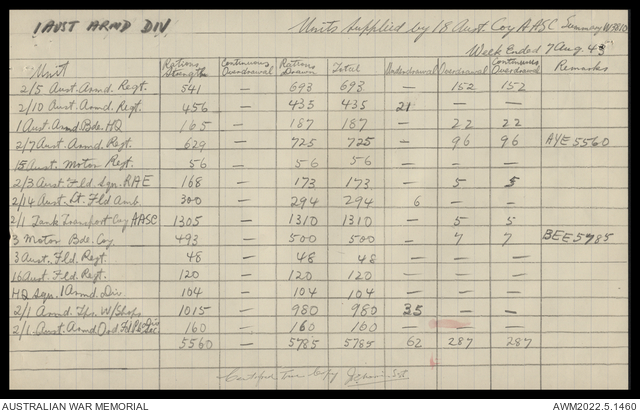 1 AUST ARMD DIV Units supplied by 18 Aust. Coy AASC Summary
Week Ended 7 Aug. 43
Unit Rations Strength Continuous Overdrawal Rations Drawn Total Underdrawal Overdrawal Continuous Overdrawal Remarks
2/5 Aust. Armd. Regt. 541 — 693 693 — 152 152
2/10 Aust. Armd. Regt. 456 — 435 435 21 — —
1 Aust. Armd. Bde. HQ 165 — 187 187 — 22 22
2/7 Aust. Armd. Regt. 629 — 725 725 — 96 96 AYE 5560
15 Aust. Motor Regt. 56 — 56 56 — — —
2/3 Aust. Fld. Sqn. RAE 168 — 173 173 — 5 5
2/14 Aust. Lt. Fld Amb. 300 — 294 294 6 — —
2/1 Tank Transport Coy AASC 1305 — 1310 1310 — 5 5
3 Motor Bde. Coy. 493 — 500 500 — 7 7 BEE 5785
3 Aust. Fld. Regt 48 — 48 48 — — —
16 Aust. Fld. Regt. 120 — 120 120 — — —
HQ Sqn. 1 Armd. Div 104 — 104 104 — — —
2/1 Armd. Tps. W/Shops 1015 — 980 980 35 — —
2/1 Aust. Armd Ord. Fld Pk 160 — 160 160 — — —
5560 — 5785 5785 62 287 287
Certified True Copy Sgt
AUSTRALIAN WAR MEMORIAL AWM2022.5.1460